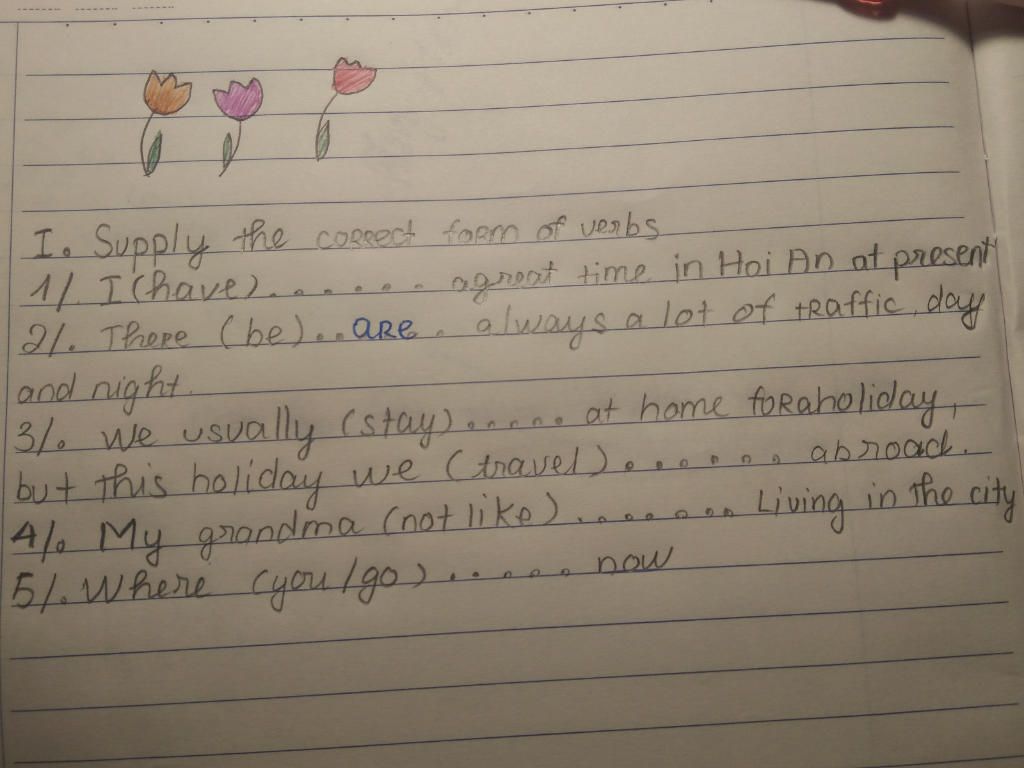 I. Supply the correct form of verbs
1/. I (have)....... a great time in Hoi An at present
2/. There (be)..are. always a lot of traffic, day
and night.
3/. We usually (stay)...... at home for a holiday,
but this holiday we (travel)....... abroad.
4/. My grandma (not like)........ Living in the city
5/. Where (you/go)...... now